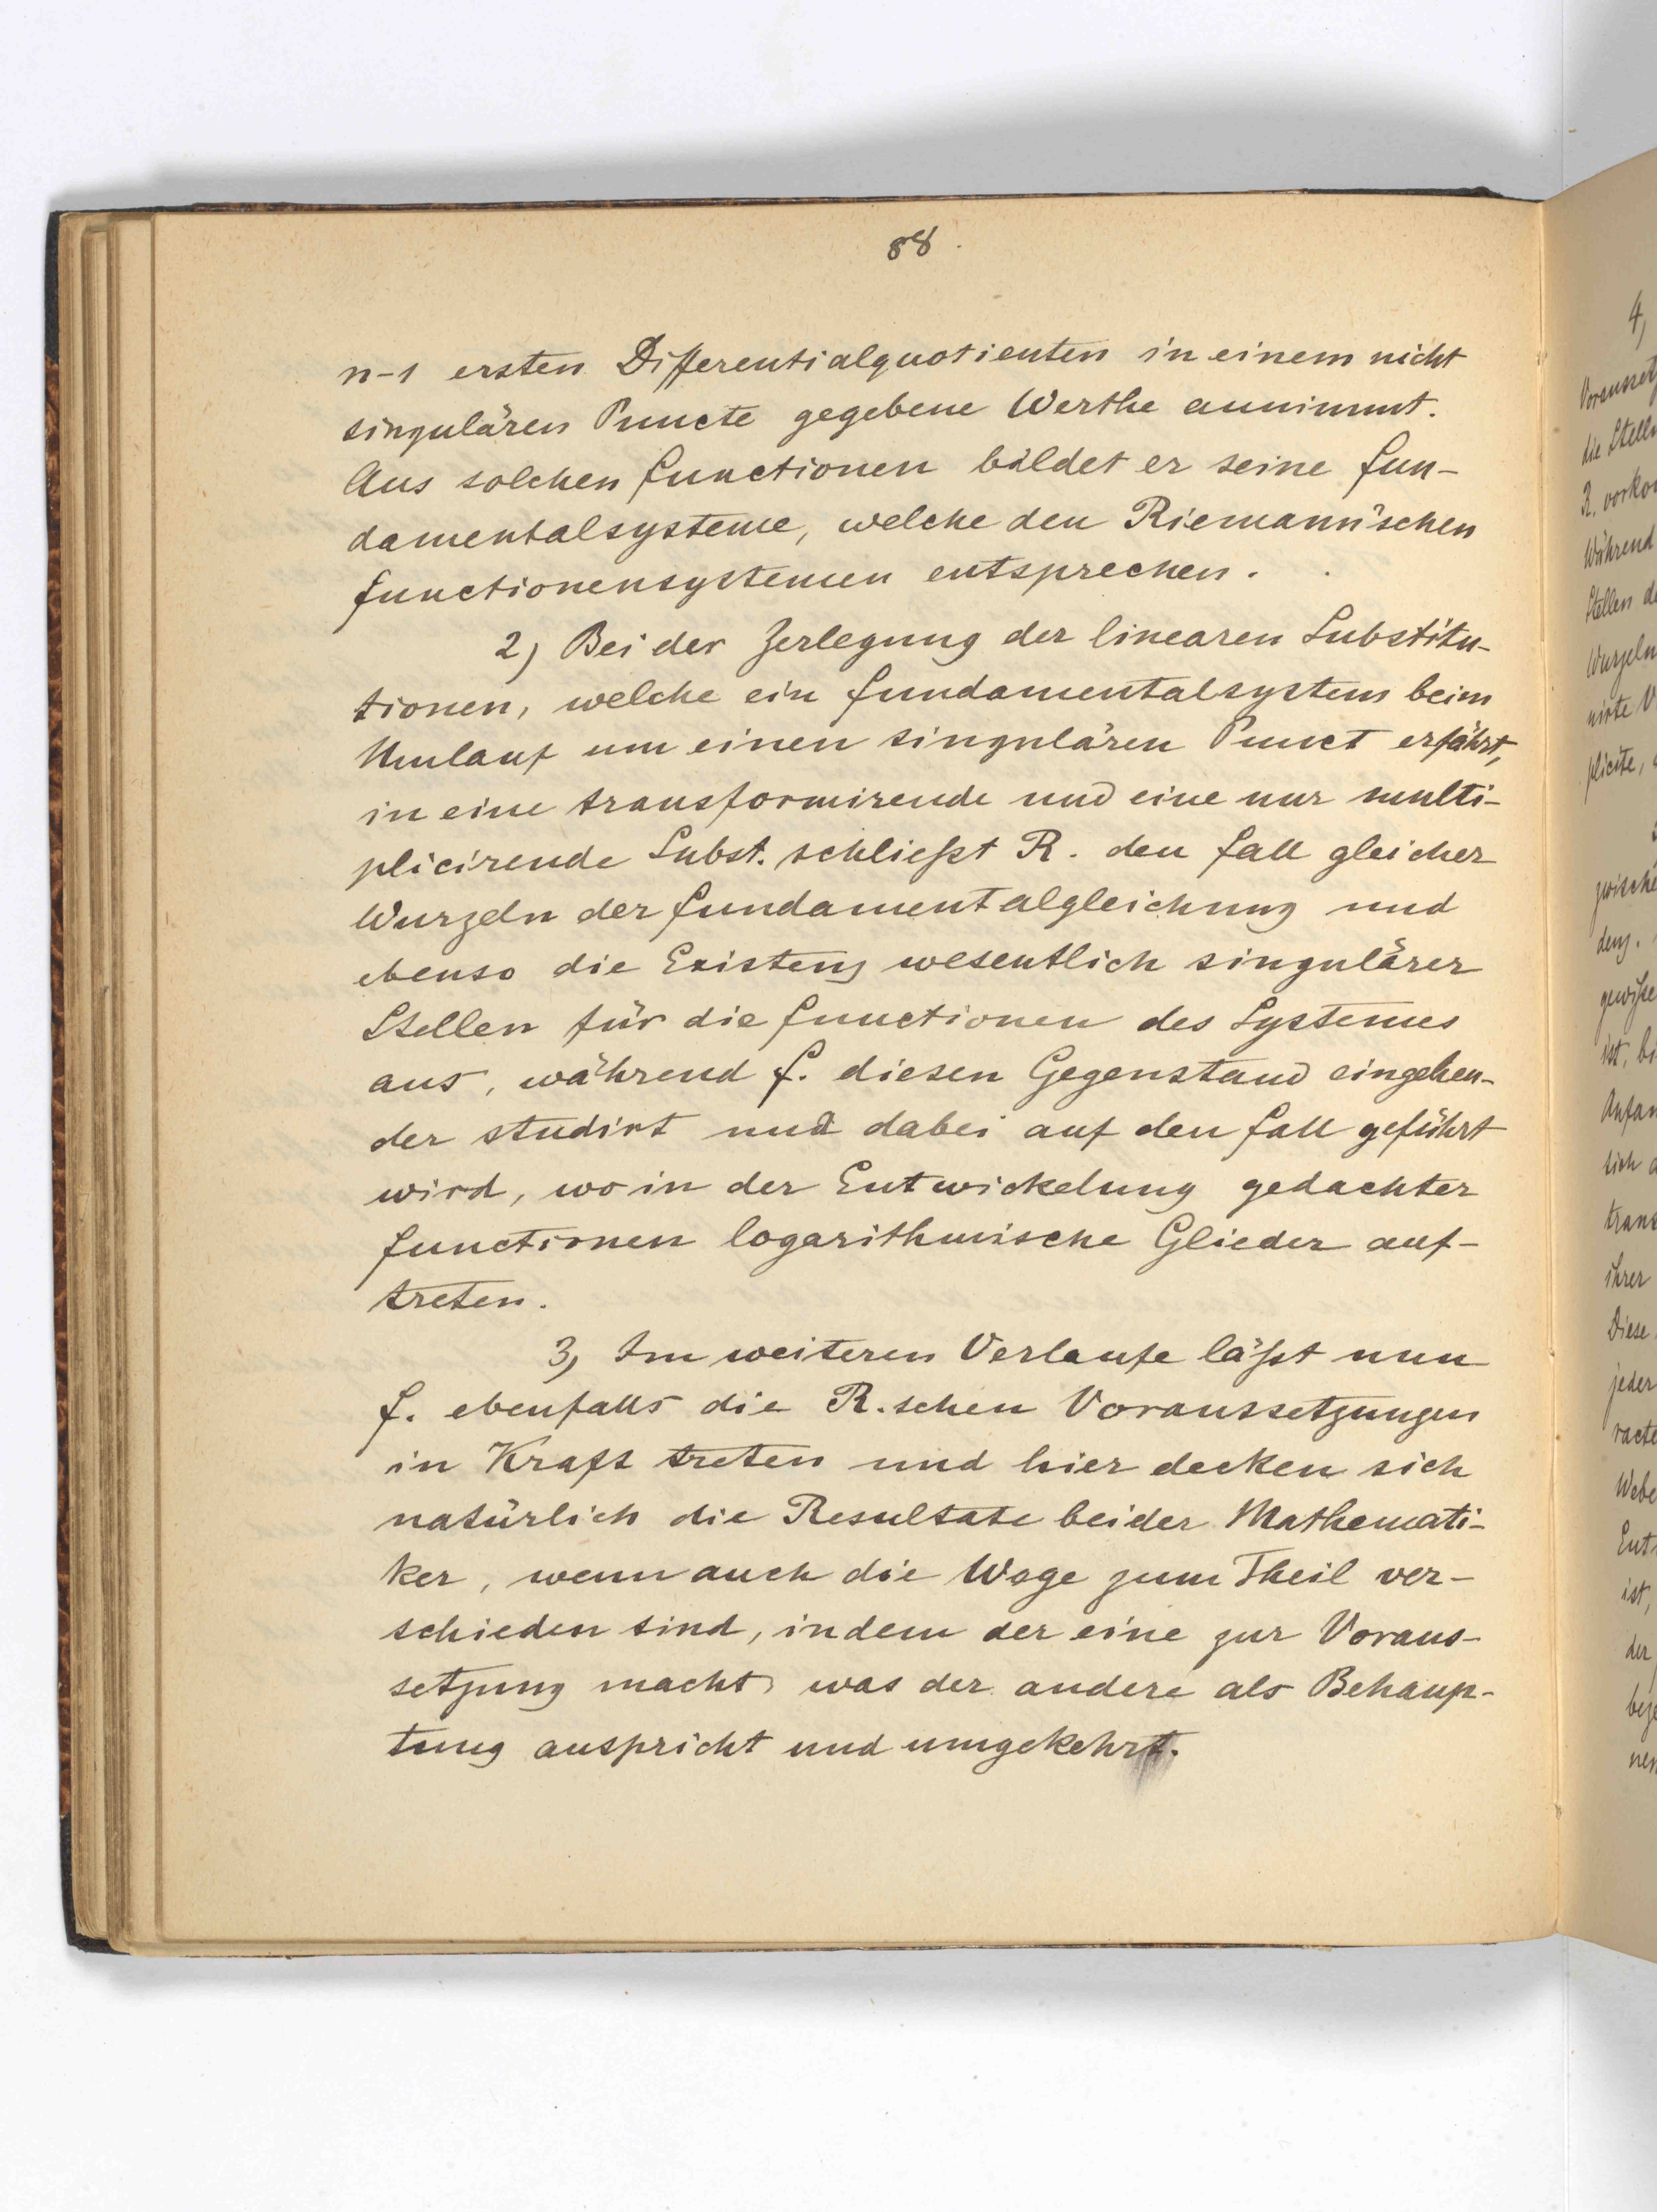 88.
n-1 ersten Differentialquotienten in einem nicht
singulären Puncte gegebene Werthe annimmt.
Aus solchen Functionen bildet er seine Fun-
damentalsysteme, welche den Riemann'schen
Functionensystemen entsprechen.
2) Bei der Zerlegung der linearen Substitu-
tionen, welche ein Fundamentalsystem beim
Umlauf um einen singulären Punct erfährt,
in eine transformirende und eine nur multi-
plicirende Subst. schließt R. den Fall gleicher
Wurzeln der Fundamentalgleichung und
ebenso die Existenz wesentlich singulärer
Stellen für die Functionen des Systemes
aus, während F. diesen Gegenstand eingehen-
der studirt und dabei auf den Fall geführt
wird, wo in der Entwickelung gedachter
Functionen logarithmische Glieder auf-
treten.
3) Im weiteren Verlaufe läßt nun
F. ebenfalls die R.schen Voraussetzungen
in Kraft treten und hier decken sich
natürlich die Resultate beider Mathemati-
ker, wenn auch die Wege zum Theil ver-
schieden sind, indem der eine zur Voraus-
setzung macht was der andere als Behaup-
tung auspricht und umgekehrt.
4)
die
R.
Während
Stellen
Wurzeln
plicite,
ist,
sich
ihrer
Diese
jeder
ist,
der